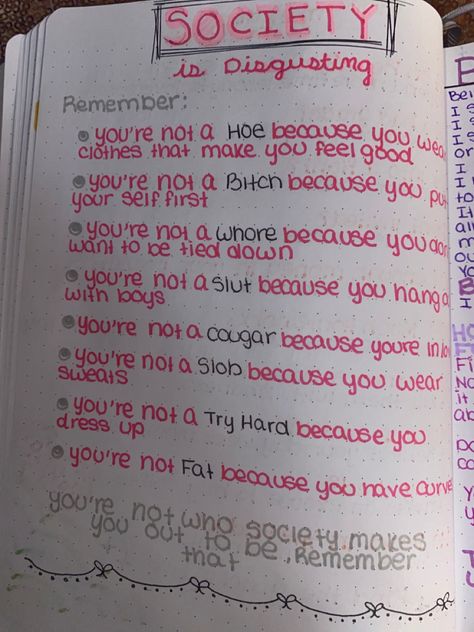 SOCIETY
is Disgusting
Remember:
you're not a Hoe because you wear
clothes that make you feel good
you're not a Bitch because you pu
your self first
you're not a whore because you don
want to be tied down
you're not a slut because you hang o
with boys
you're not a cougar because youre in lo
you're not a slob because you wear
sweats
you're not a Try Hard because you
dress up
you're not Fat because you have curve
you're not who society makes
you out to be, Remember
that
Bei
I
I
I
or
I
I
to
It
al
m
ou
yo
B
I
Fi
No
it